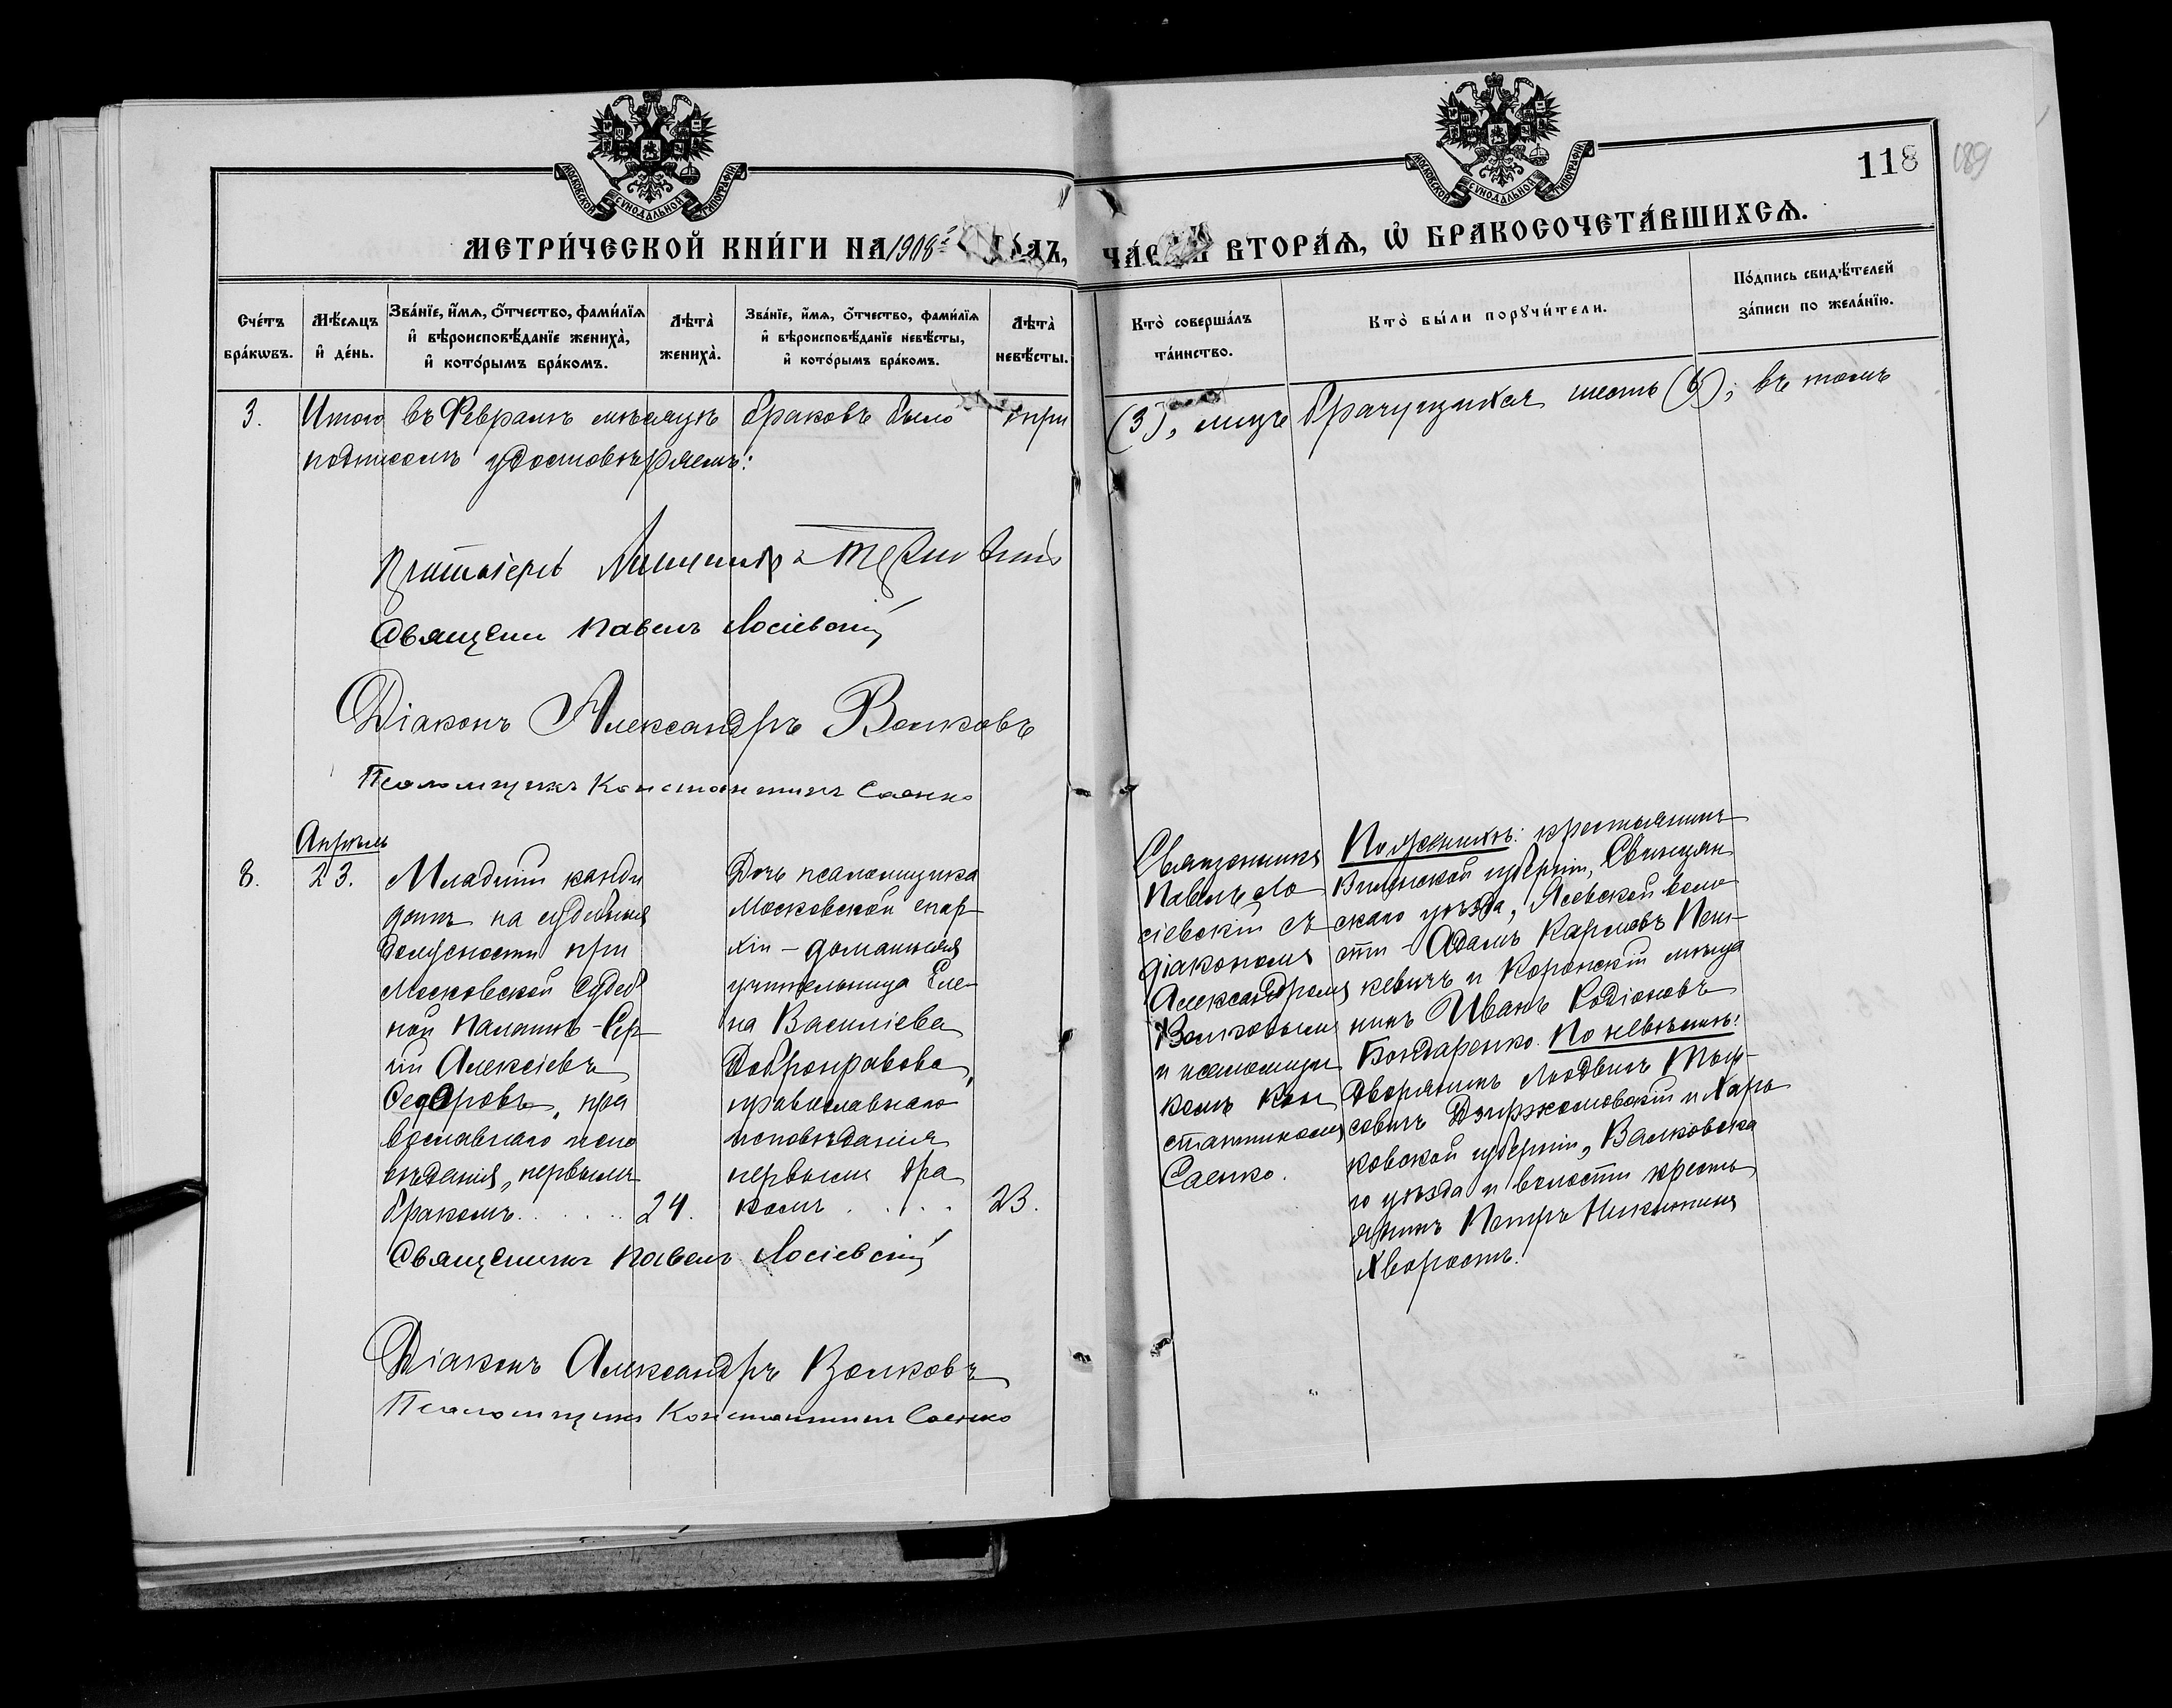 МОСКОВСКОЙ СѴНОДАЛЬНОЙ ТИПОГРАФІИ
МОСКОВСКОЙ СѴНОДАЛЬНОЙ ТИПОГРАФІИ
118
189
МЕТРИ́ЧЕСКОЙ КНИ́ГИ НА 1908й ГОДЪ, ЧА́СТЬ ВТОРА́Ѧ, Ѡ БРАКОСОЧЕТА́ВШИХСѦ.
Сче́тъ бра́кѡвъ.
Мѣ́сѧцъ и де́нь.
Зва́нїе, и́мѧ, о́тчество, фами́лїѧ и вѣроисповѣ́данїе жениха̀, и кото́рымъ бра́комъ.
Лѣта̀ жениха̀.
Зва́нїе, и́мѧ, о́тчество, фами́лїѧ и вѣроисповѣ́данїе невѣ́сты, и кото́рымъ бра́комъ.
Лѣта̀ невѣ́сты.
Кто̀ соверша́лъ та́инство.
Кто̀ бы́ли порꙋчи́тели.
По́дпись свидѣ́телей за́писи по жела́нїю.
3. Итого въ Февралѣ мѣсяцѣ браковъ было три (3), лицъ брачущихся шесть (6); въ томъ
подписомъ удостовѣряемъ:
Протоіерей
Священн Павелъ Лосіевскій
Діаконъ Александръ Волковъ
Псаломщикъ Константинъ Саенко
Апрѣль
8. 23.
Младшій канди
датъ на судебныя
должности при
Московской Судеб
ной Палатѣ – Сер
гій Алексіевъ
Федоровъ, пра
вославнаго испо
вѣданія, первымъ
бракомъ. 24.
Дочь псаломщика
Московской епар
хіи – домашняя
учительница Еле
на Василіева
Добронравова,
православнаго
исповѣданія
первымъ бра
комъ 23.
Священникъ
Павелъ Ло
сіевскій съ
діакономъ
Александромъ
Волковымъ
и псаломщи
комъ Кон
стантиномъ
Саенко.
По женихѣ: крестьянинъ
Виленской губерніи, Свенцян
скаго уѣзда, Ясевской воло
сти – Адамъ Карловъ Пет-
кевичъ и Коронскій мѣща
нинъ Иванъ Родіоновъ
Бондаренко. По невѣстѣ:
Дворянинъ Людвигъ
совичъ Дзержановскій и Харь
ковской губерніи, Валковска
го уѣзда и волости кресть
янинъ Петръ Никитинъ
Хворостъ.
Священникъ Павелъ Лосіевскій
Діаконъ Александръ Волковъ
Псаломщикъ Константинъ Саенко